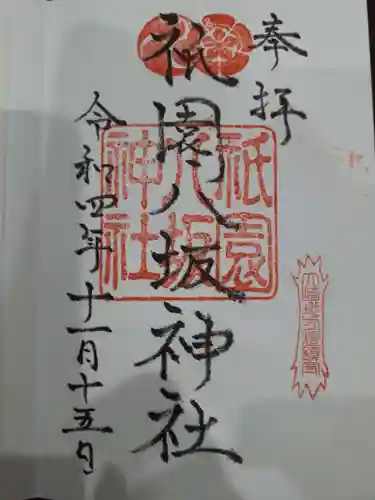 奉拝
祇園八坂神社
令和四年十一月十五日
祇園
八坂
神社